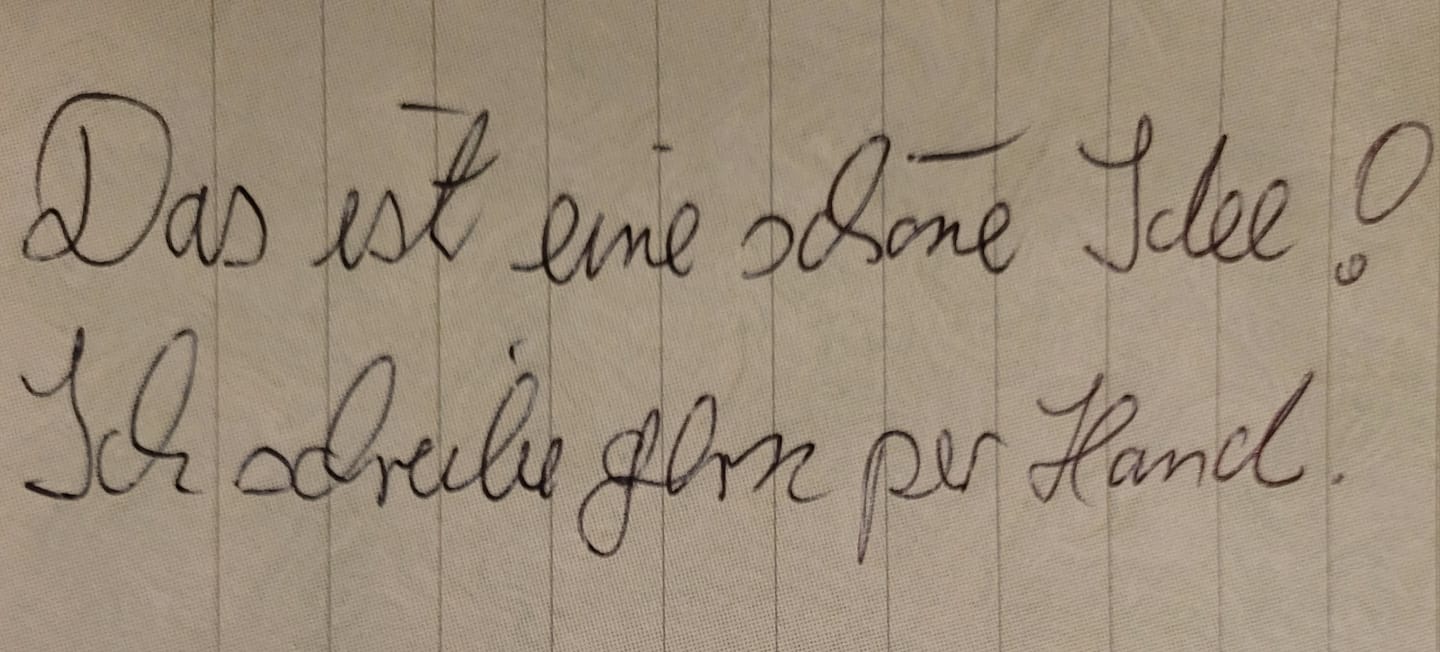 Das ist eine schöne Idee!
Ich schreibe gern per Hand.